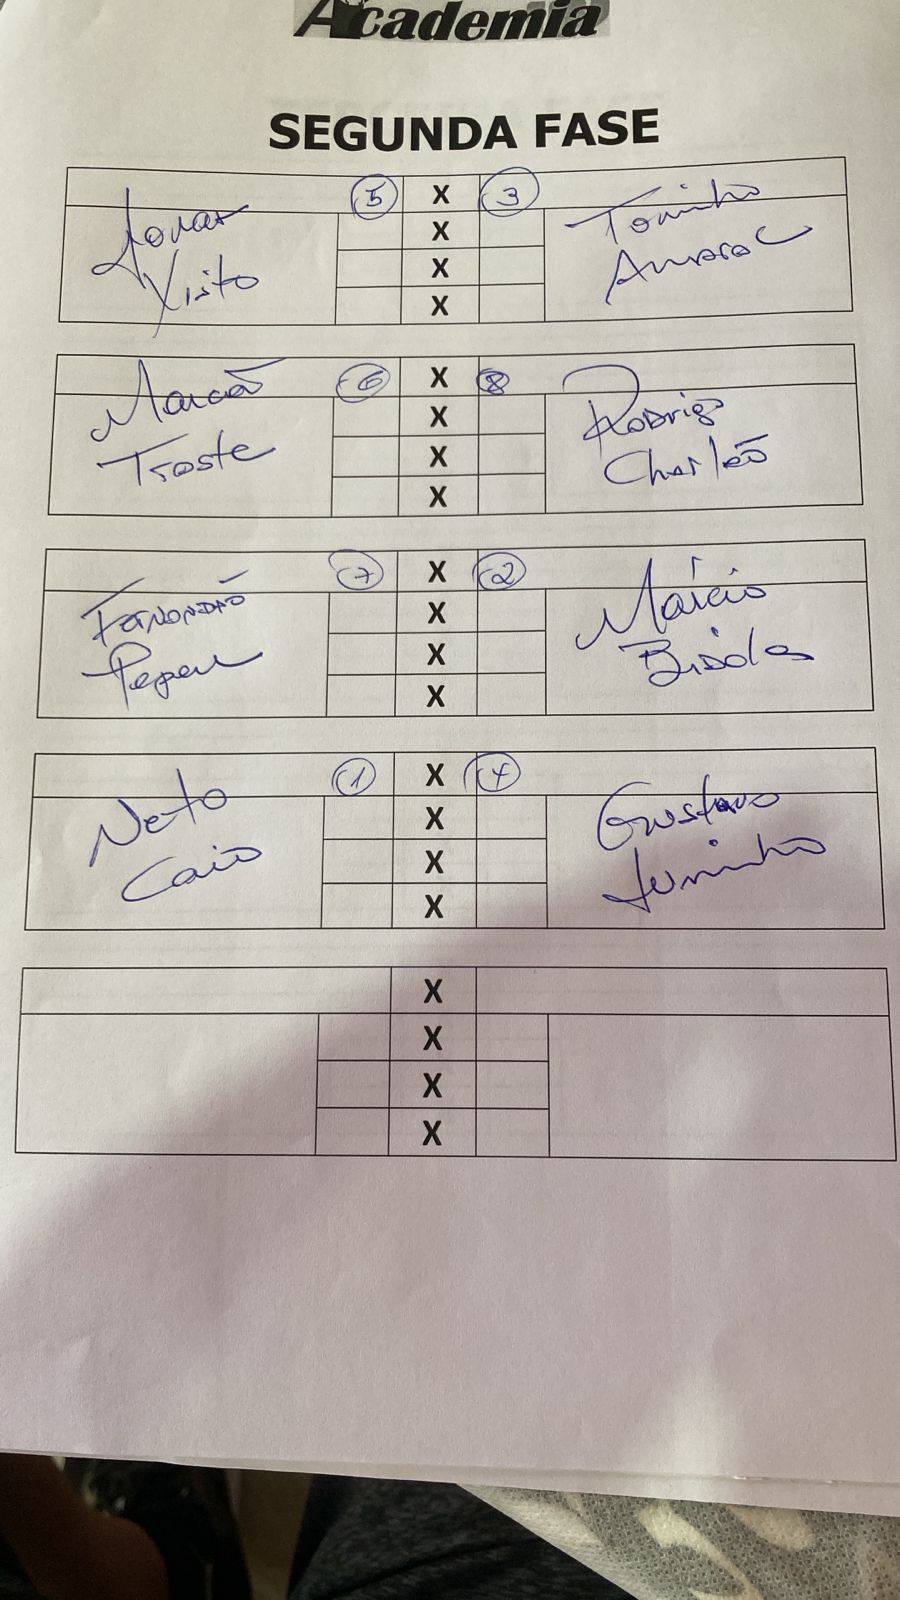 Academia
SEGUNDA FASE
5 X 3
Jonas
Toninho
X
Xisto
Amaral
X
X
Marcão
6 X 8
Rodrigo
X
Troste
Charleão
X
X
7 X 2
Fernandão
Márcio
X
X
X
1 X 4
Neto
Gustavo
X
Caio
Juninho
X
X
X
X
X
X